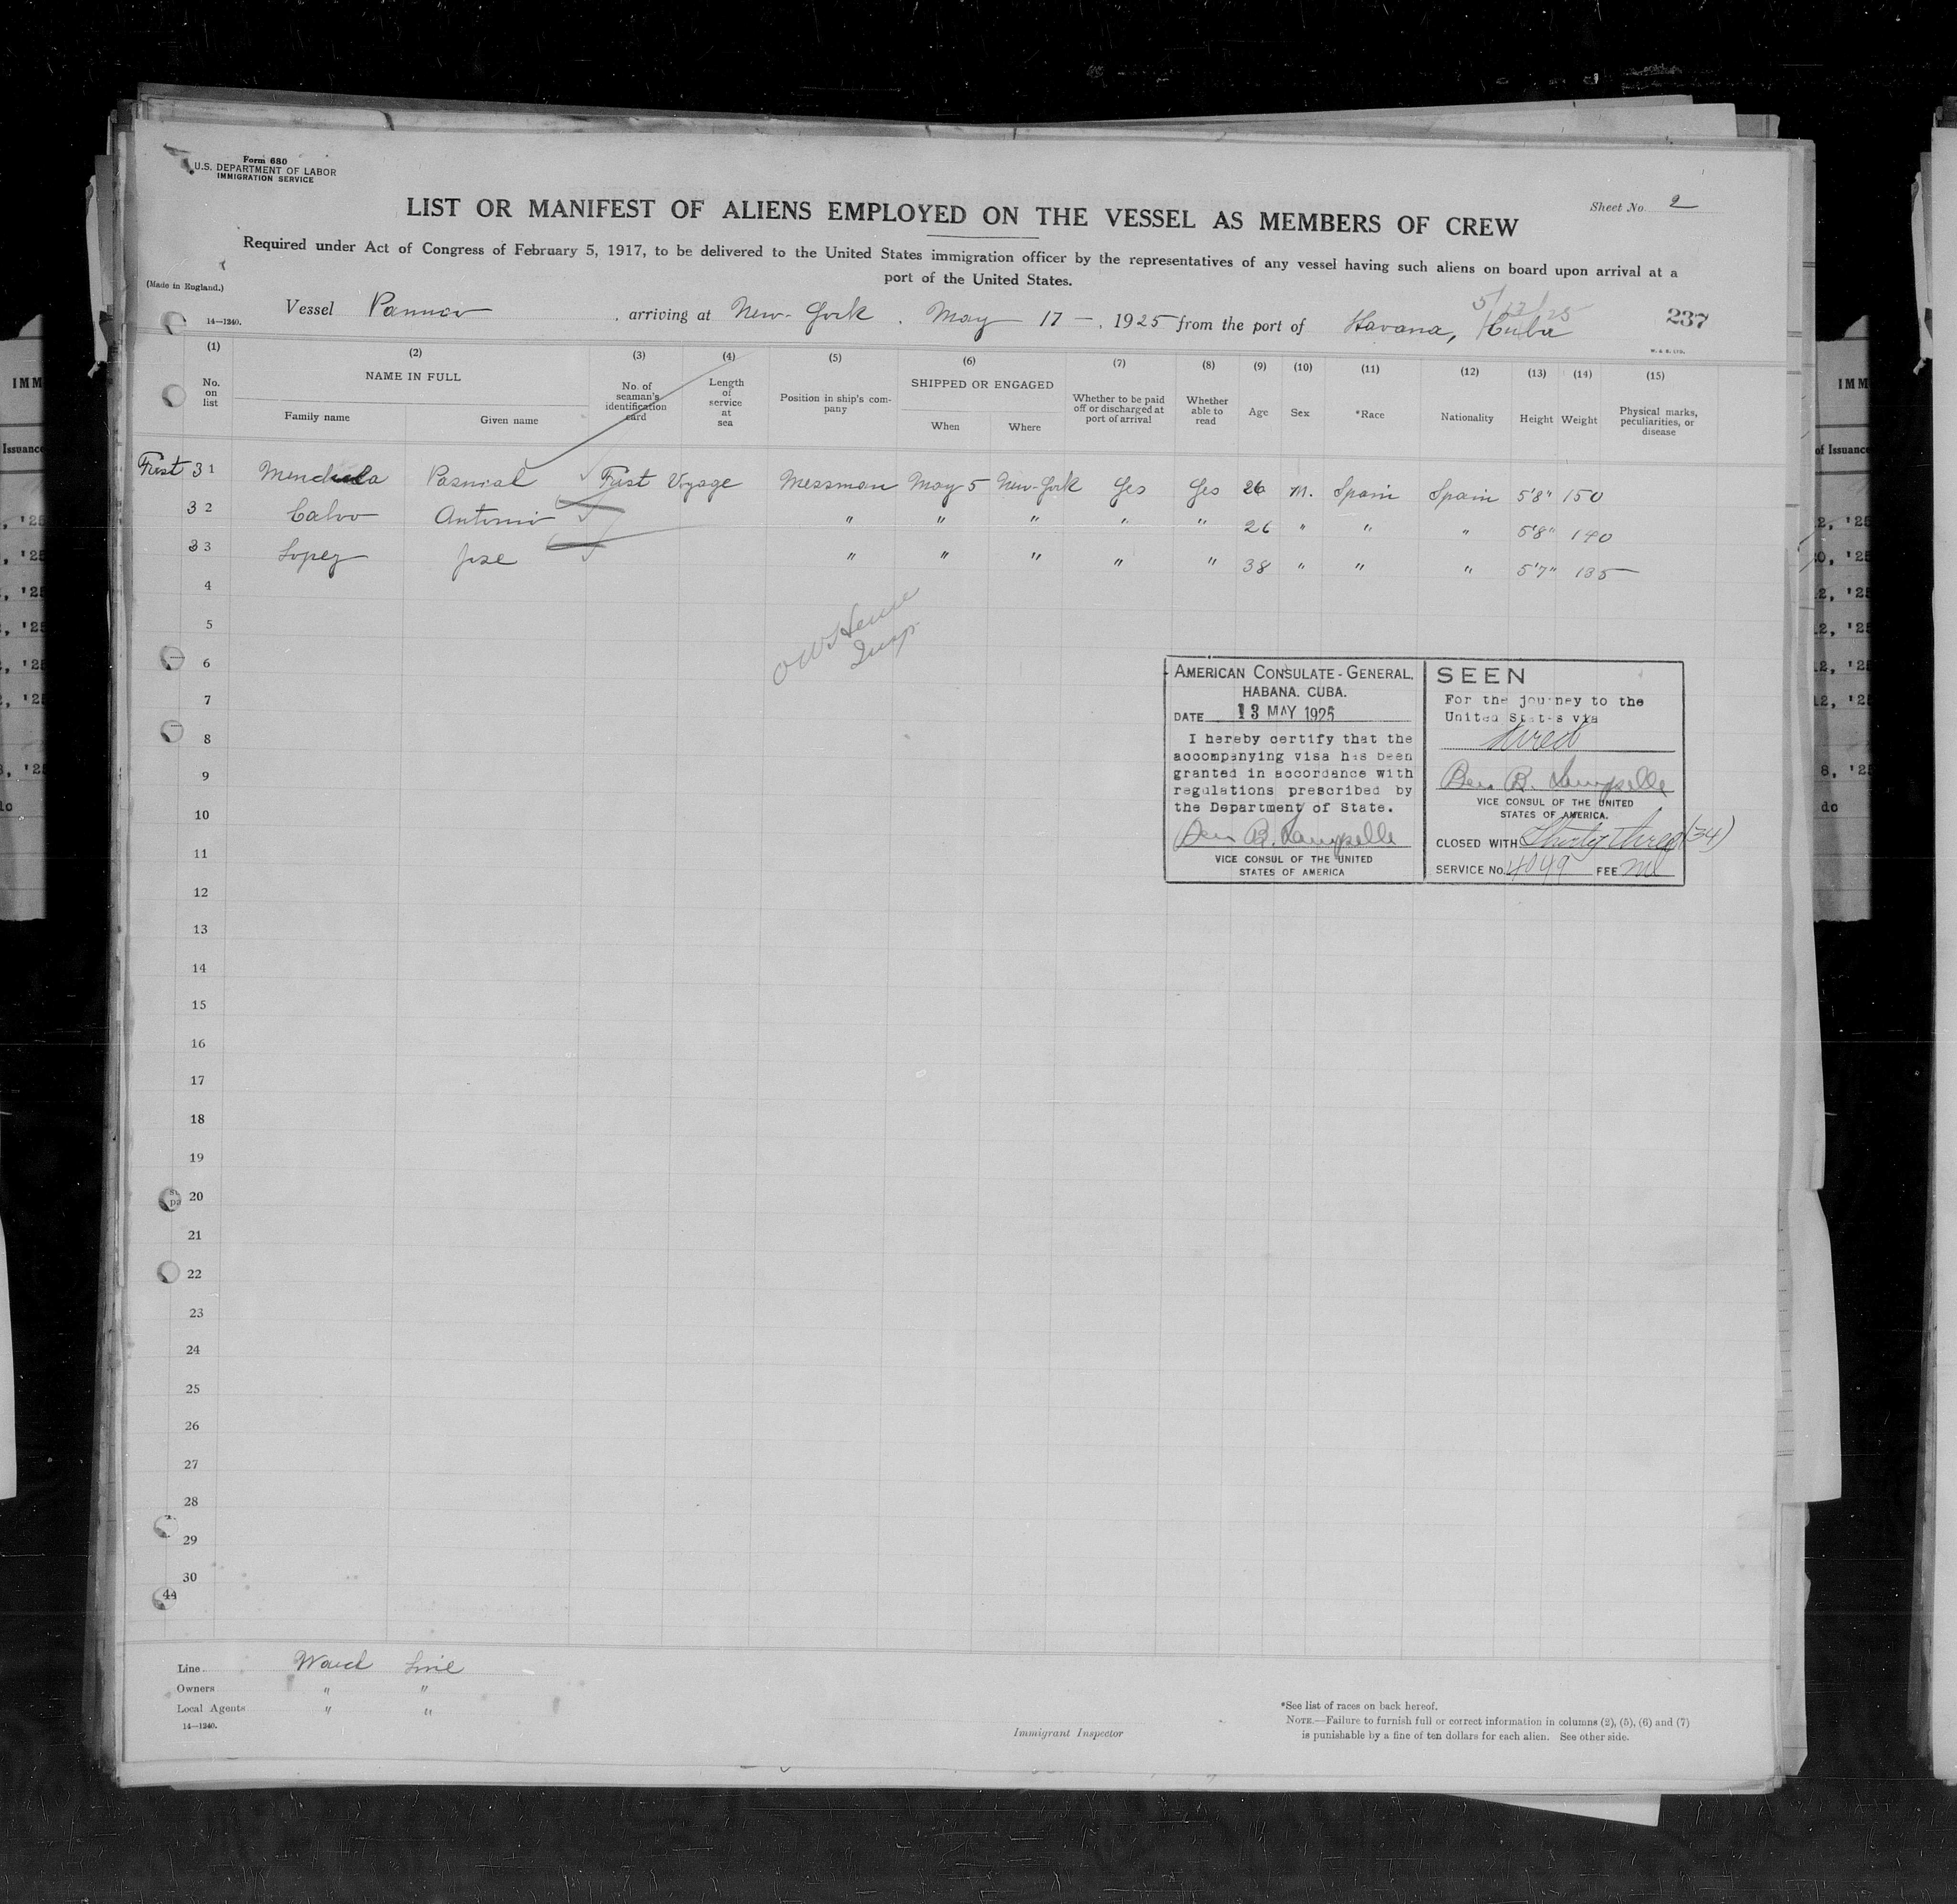 Form 680
U.S. DEPARTMENT OF LABOR
IMMIGRATION SERVICE
Sheet No. 2
LIST OR MANIFEST OF ALIENS EMPLOYED ON THE VESSEL AS MEMBERS OF CREW
Required under Act of Congress of February 5, 1917, to be delivered to the United States immigration officer by the representatives of any vessel having such aliens on board upon arrival at a
port of the United States.
(Made in England.)
5/13/25
14—1240.
Vessel Panuco, arriving at New-York, May 17 —, 1925 from the port of Havana, Cuba
237
(1) (2) (3) (4) (5) (6) (7) (8) (9) (10) (11) (12) (13) (14) (15)
No. on list NAME IN FULL Family name Given name No. of seaman's identification card Length of service at sea Position in ship's company SHIPPED OR ENGAGED When Where Whether to be paid off or discharged at port of arrival Whether able to read Age Sex *Race Nationality Height Weight Physical marks, peculiarities, or disease
First 3 1 First Voyage Messman May 5 New-York Yes Yes 26 M. Spain Spain 5'8" 150
3 2 Calvo Antonio " " " " " 26 " " " 5'8" 140
3 3 Lopez Jose " " " " " 38 " " " 5'7" 135
4
5
6
7
8
9
10
11
12
13
14
15
16
17
18
19
20
21
22
23
24
25
26
27
28
29
30
44
Insp.
AMERICAN CONSULATE-GENERAL,
HABANA. CUBA.
DATE 13 MAY 1925
I hereby certify that the
accompanying visa has been
granted in accordance with
regulations prescribed by
the Department of State.
Ben B.
VICE CONSUL OF THE UNITED
STATES OF AMERICA
SEEN
For the journey to the
United States via
direct
Ben B.
VICE CONSUL OF THE UNITED
STATES OF AMERICA.
CLOSED WITH Thirty three (34)
SERVICE No. 4049 FEE
Line Ward Line
Owners " "
Local Agents " "
14—1240.
Immigrant Inspector
*See list of races on back hereof.
NOTE.—Failure to furnish full or correct information in columns (2), (5), (6) and (7)
is punishable by a fine of ten dollars for each alien. See other side.